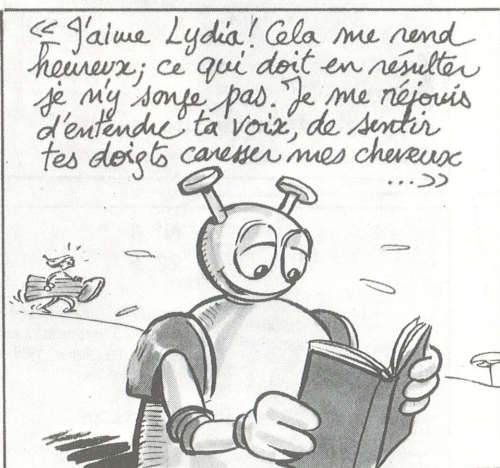 « J'aime Lydia! Cela me rend
heureux; ce qui doit en résulter
je n'y songe pas. Je me réjouis
d'entendre ta voix, de sentir
tes doigts caresser mes cheveux
...»